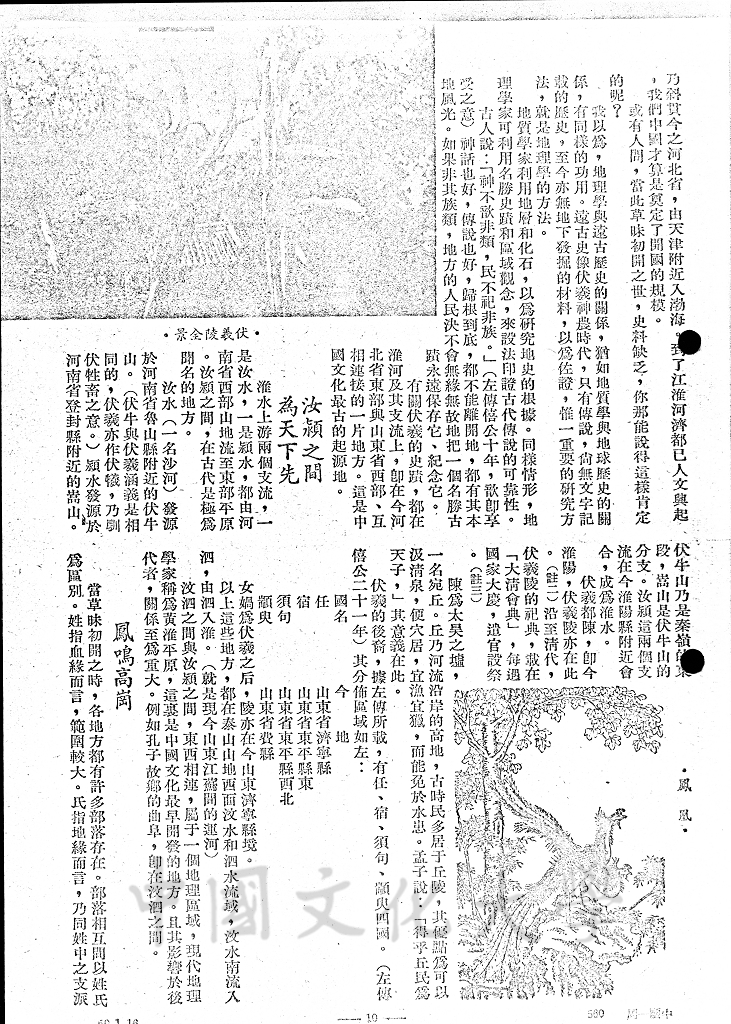 乃斜貫今之河北省，由天津附近入渤海。到了江淮河濟都已人文興起
，我們中國才算是奠定了開國的規模。
或有人問，當此草昧初開之世，史料缺乏，你那能說得這樣肯定
的呢？
我以爲，地理學與遠古歷史的關係，猶如地質學與地球歷史的關
係，有同樣的功用。遠古史像伏羲神農時代，只有傳說，尚無文字記
載的歷史，至今亦無地下發掘的材料，以爲佐證，惟一重要的研究方
法，就是地理學的方法。
地質學家利用地層和化石，以爲研究地史的根據。同樣情形，地
理學家可利用名勝史蹟和區域觀念，來設法印證古代傳說的可靠性。
古人說：「神不歆非類，民不祀非族。」（左傳僖公十年，歆卽享
受之意）神話也好，傳說也好，歸根到底，都不能離開地，都有其本
地風光。如果非其族類，地方的人民決不會無緣無故地把一個名勝古
蹟永遠保存它，紀念它。
有關伏羲的史蹟，都在
淮河及其支流上，卽在今河
北省東部與山東省西部、互
相連接的一片地方。這是中
國文化最古的起源地。
汝潁之間
爲天下先
淮水上游兩個支流，一
是汝水，一是潁水，都由河
南省西部山地流至東部平原
。汝潁之間，在古代是極爲
聞名的地方。
汝水（一名沙河）發源
於河南省魯山縣附近的伏牛
山。（伏牛與伏羲涵義是相
同的，伏羲亦作伏犧，乃馴
伏牲畜之意。）潁水發源於
河南省登封縣附近的嵩山。
・伏羲陵全景・
伏牛山乃是秦嶺的東
段，嵩山是伏牛山的
分支。汝潁這兩個支
流在今淮陽縣附近會
合，成爲淮水。
伏羲都陳，卽今
淮陽，伏羲陵亦在此
。（註二）沿至清代，
伏羲陵的祀典，載在
「大清會典」，每遇
國家大慶，遣官設祭
。（註三）
陳爲太昊之墟，
一名宛丘。丘乃河流沿岸的高地，古時民多居于丘陵，其優點爲可以
汲清泉，便穴居，宜漁宜獵，而能免於水患。孟子說：「得乎丘民爲
天子，」其意義在此。
伏羲的後裔，據左傳所載，有任、宿、須句、顓臾四國。（左傳
僖公二十一年）其分佈區域如左：
國名　今地
任　山東省濟寧縣
宿　山東省東平縣東
須句　山東省東平縣西北
顓臾　山東省費縣
女媧爲伏羲之后，陵亦在今山東濟寧縣境。
以上這些地方，都在泰山山地西面汶水和泗水流域，汶水南流入
泗，由泗入淮。（就是現今山東江蘇間的運河）
汶泗之間與汝潁之間，東西相連，屬于一個地理區域，現代地理
學家稱爲黃淮平原，這裏是中國文化最早開發的地方。且其影響於後
代者，關係至爲重大。例如孔子故鄉的曲阜，卽在汶泗之間。
鳳鳴高崗
當草昧初開之時，各地方都有許多部落存在。部落相互間以姓氏
爲區別。姓指血緣而言，範圍較大。氏指地緣而言，乃同姓中之支派
・鳳凰・
中國文化大學
— 10 —
560 周一題中
60.1.16